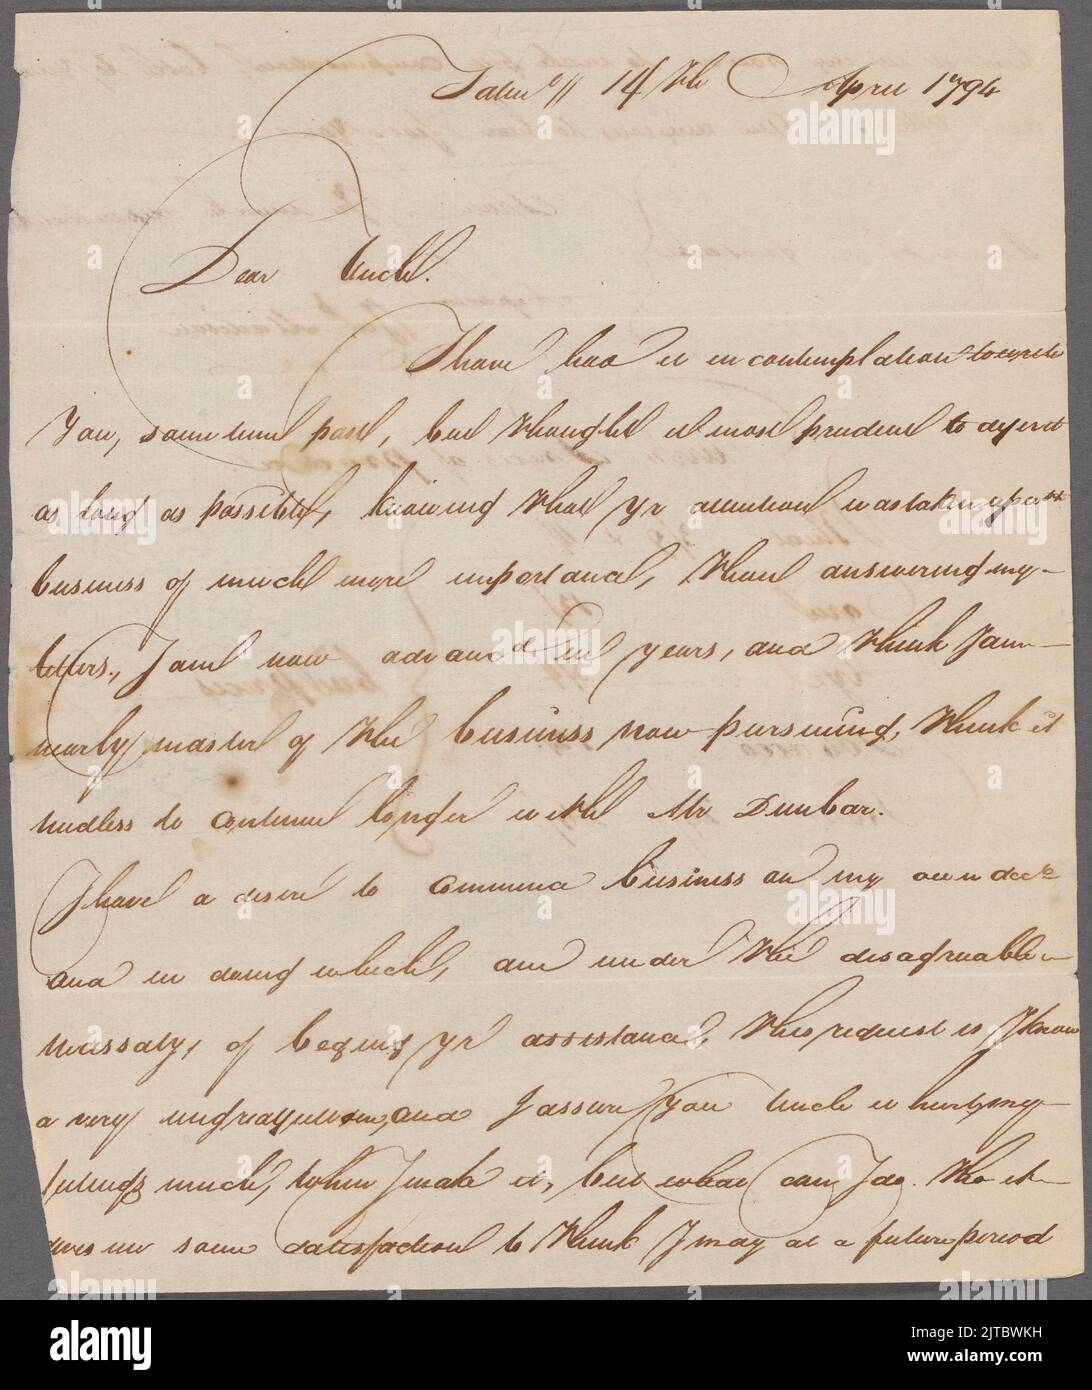 14th April 1794
Dear Uncle.
I have had it in contemplation to write
You, some time past, but thought it most prudent to
as long as possible, knowing that yr attention was taken up wth
business of much more importance, than answering my
letters, I am now advancd in years, and think I am
nearly master of the business now pursuing, think it
needless to continue longer with Mr Dunbar.
I have a desire to commence business on my own
and in doing which, am under the disagreeable
necessaty, of beging yr assistance, this request is I know
a very one, and I assure you Uncle it hurts my
felings much, when I make it, but what can I do. tho it
gives me some satisfaction to think I may at a future period
alamy
Image ID: 2JTBWKH
www.alamy.com